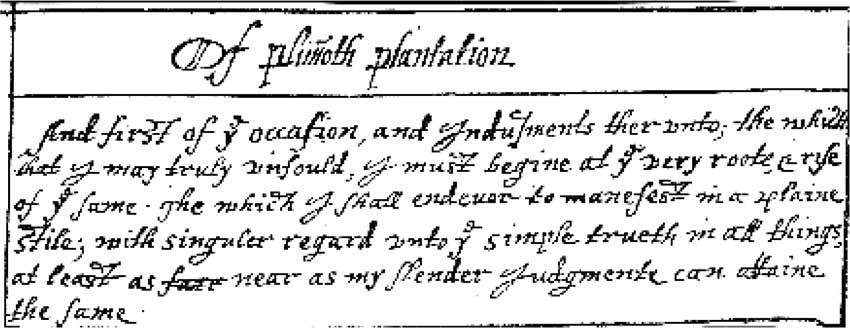 Of plim̃oth plantation
And first of yͤ occasion, and Indusments ther vnto; the which
that I may truly vnfould, I must begine at yͤ very roote & rise
of yͤ same. The which I shall endevor to manefest in a plaine
stile; with singuler regard vnto yͤ simple trueth in all things,
at least as farr near as my slender Judgmente can attaine
the same.